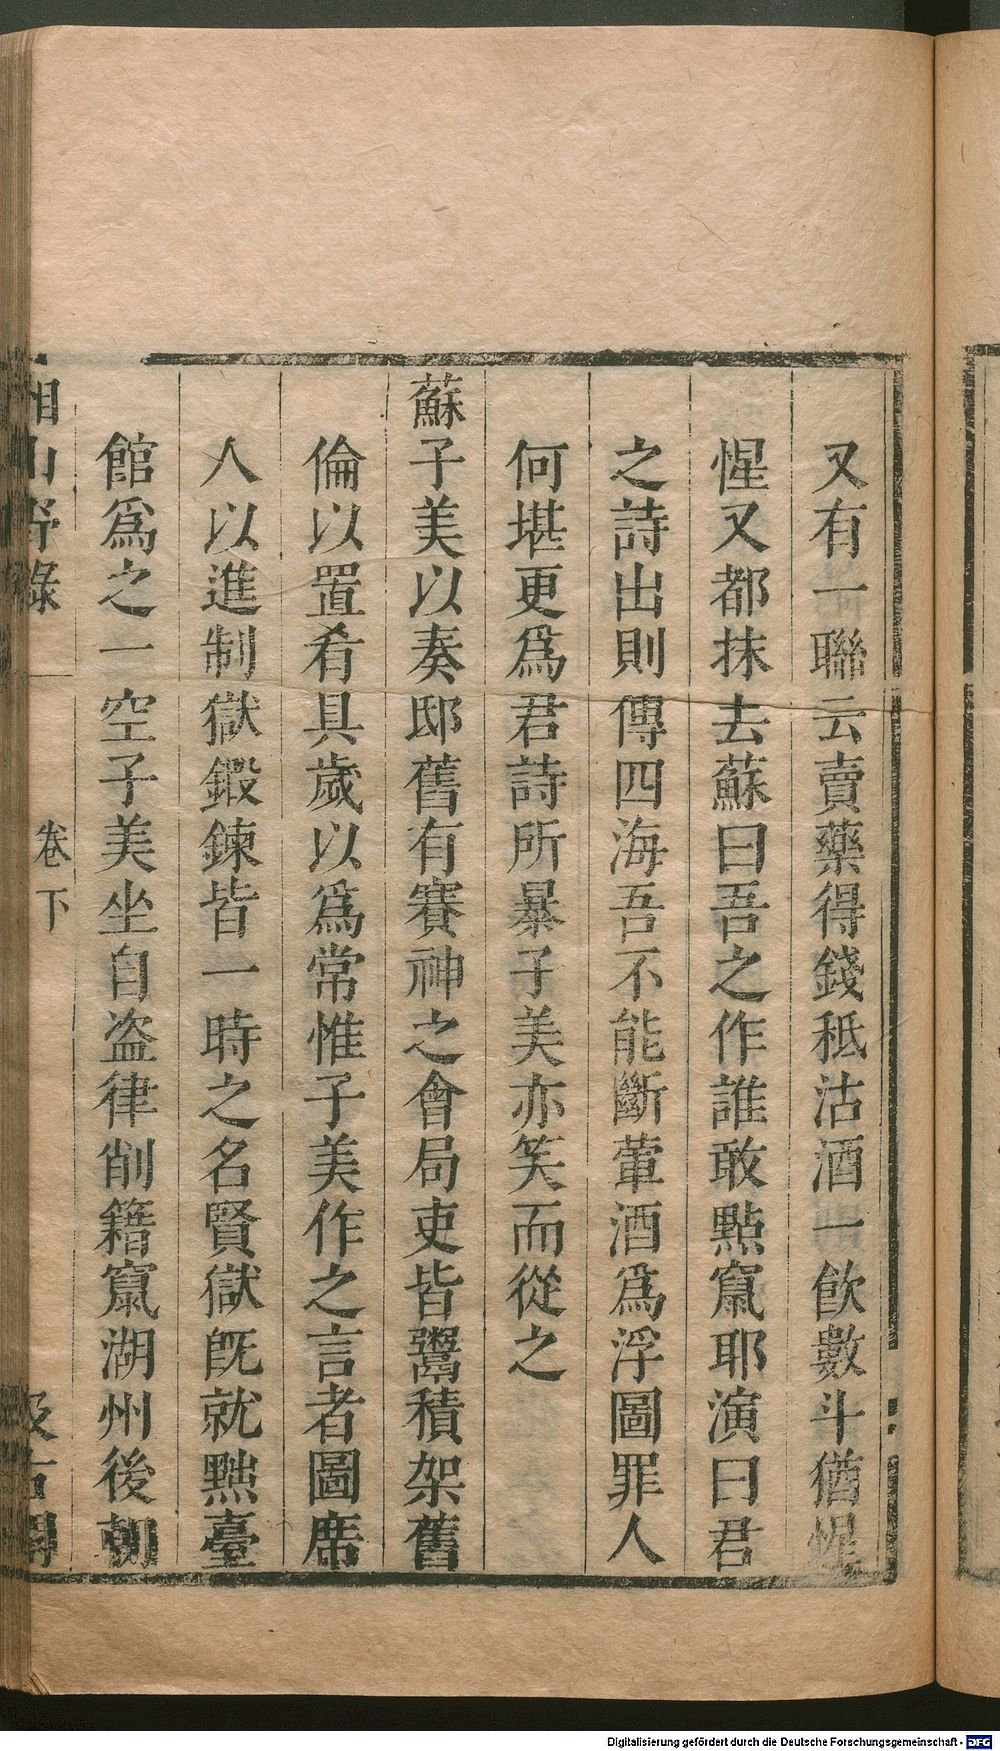 又有一聯云賣藥得錢秪沽酒一飲數斗猶惺
惺又都抹去蘇曰吾之作誰敢點竄耶演曰君
之詩出則傳四海吾不能斷葷酒爲浮圖罪人
何堪更爲君詩所暴子美亦笑而從之
蘇子美以奏邸舊有賽神之會局吏皆鬻積架舊
倫以置肴具歲以爲常惟子美作之言者圖席
人以進制獄鍛鍊皆一時之名賢獄旣就黜臺
館爲之一空子美坐自盜律削籍竄湖州後朝
湘山野錄 卷下 汲古閣
Digitalisierung gefördert durch die Deutsche Forschungsgemeinschaft - DFG